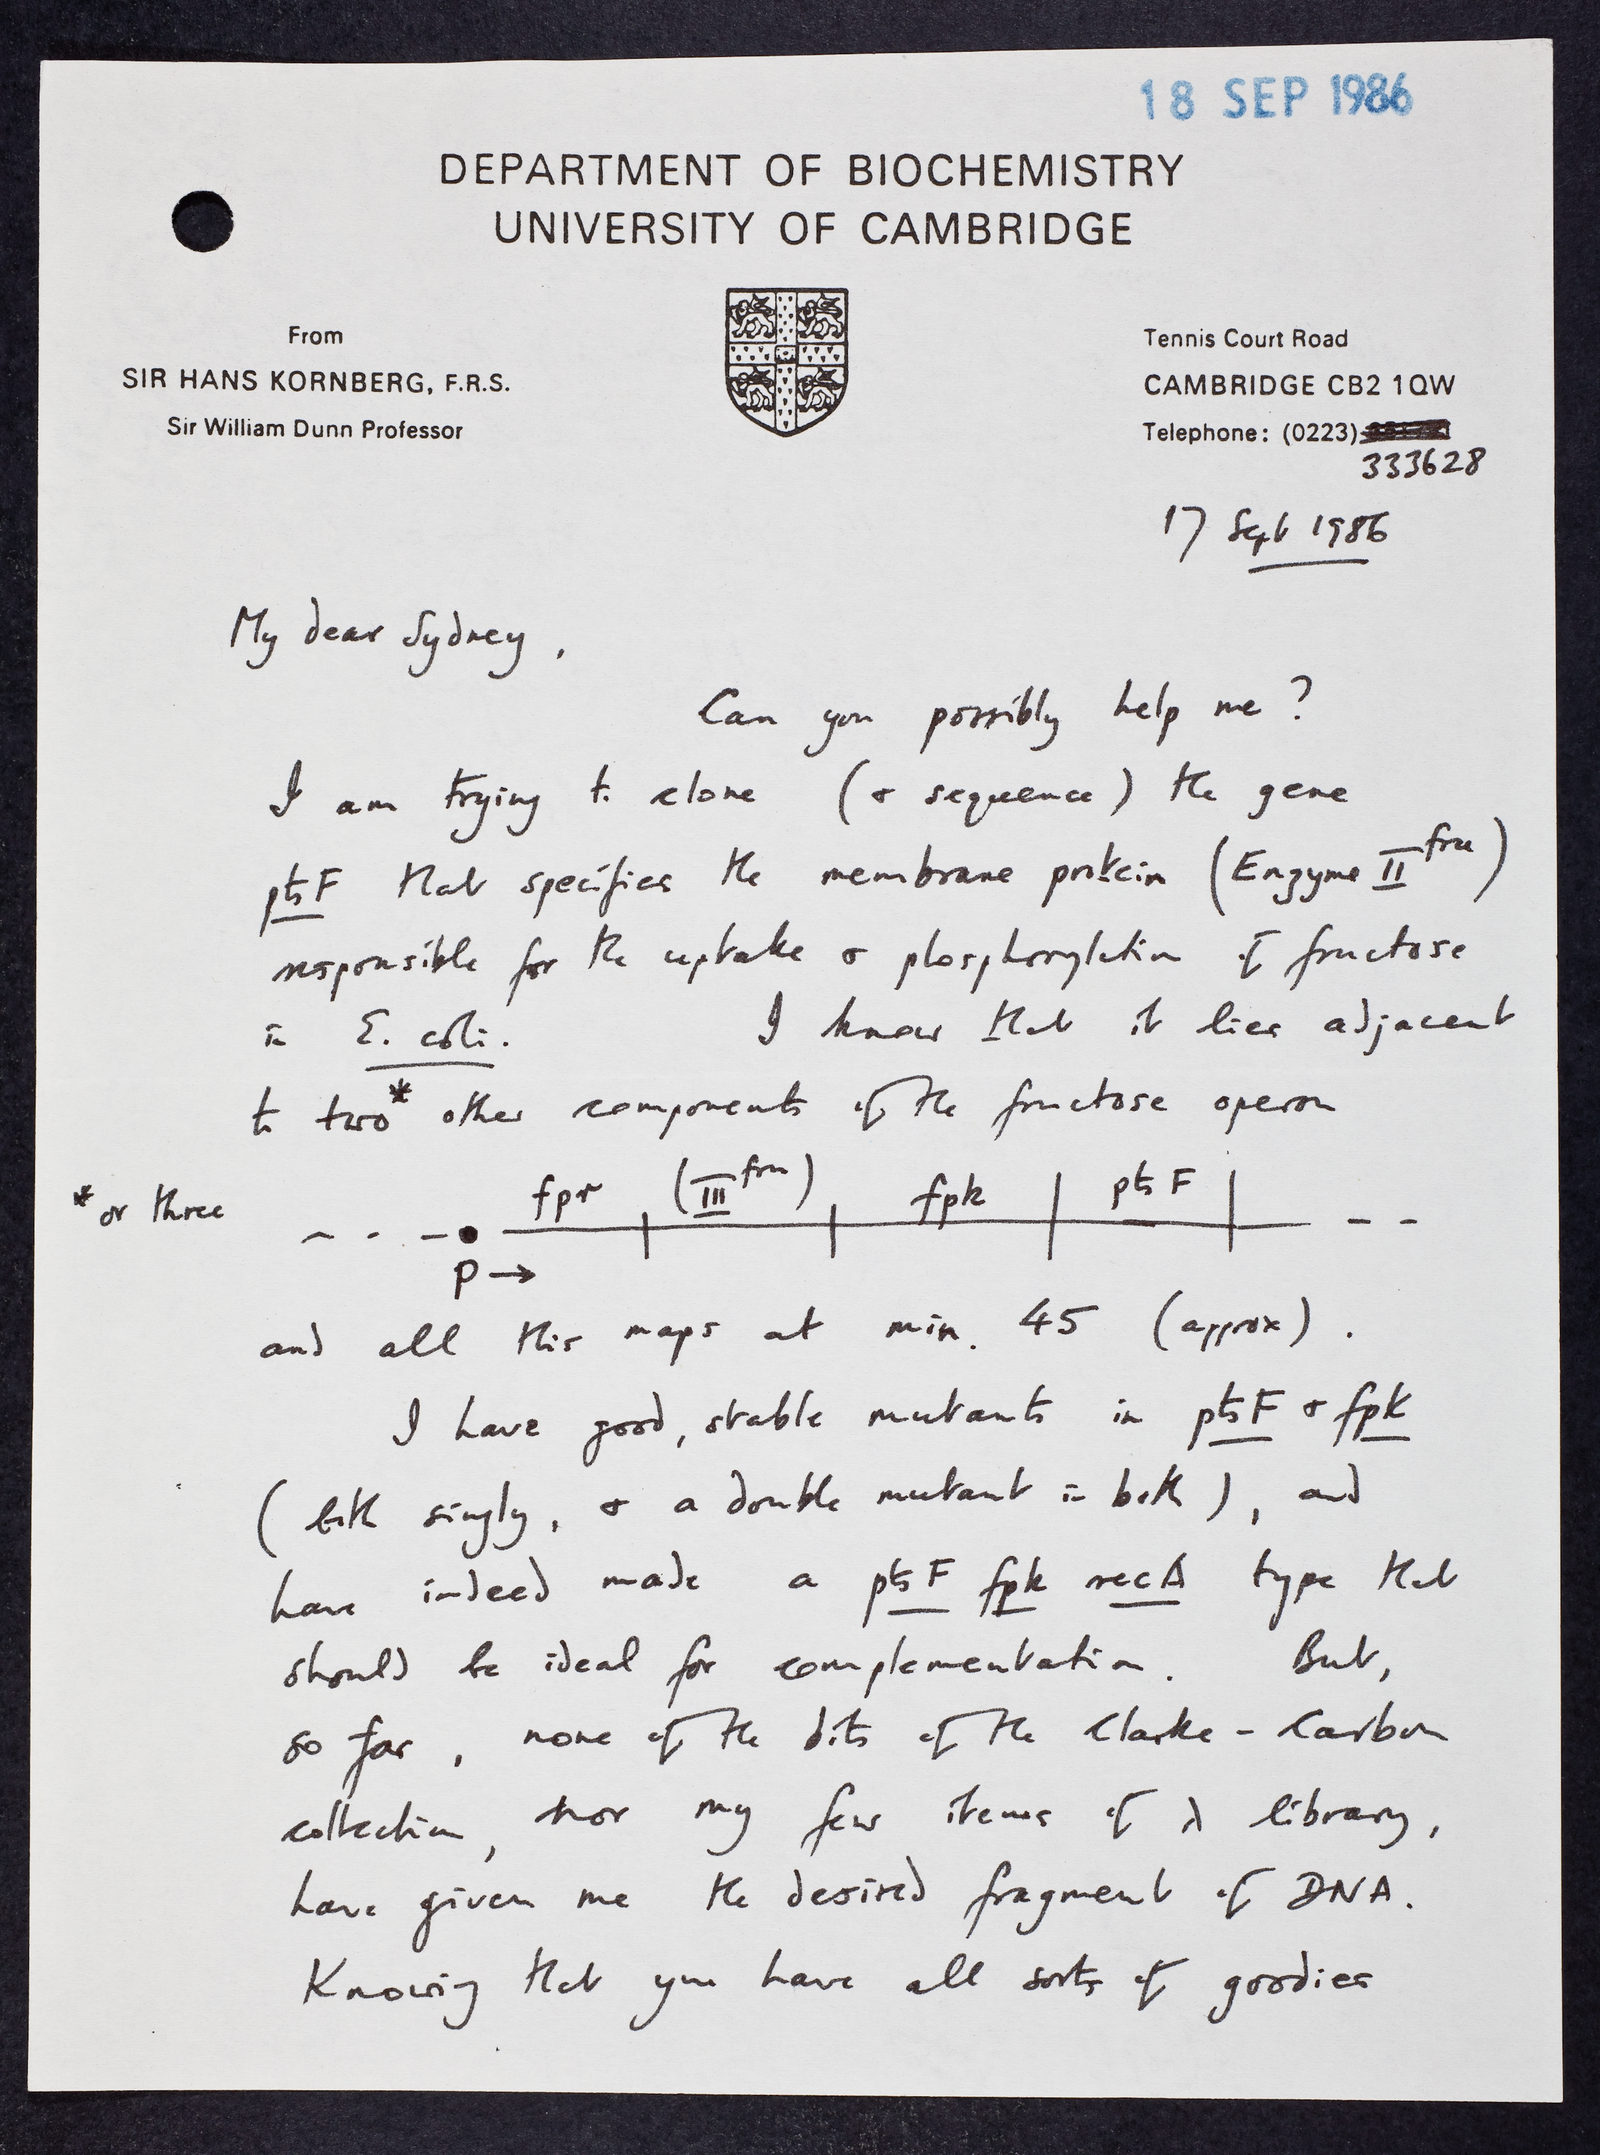 18 SEP 1986
DEPARTMENT OF BIOCHEMISTRY
UNIVERSITY OF CAMBRIDGE
From
SIR HANS KORNBERG, F.R.S.
Sir William Dunn Professor
Tennis Court Road
CAMBRIDGE CB2 1QW
Telephone: (0223)
333628
17 Sept 1986
My dear Sydney,
Can you possibly help me?
I am trying to clone (& sequence) the gene
ptsF that specifies the membrane protein (Enzyme II^fru)
responsible for the uptake & phosphorylation of fructose
in E. coli. I know that it lies adjacent
to two* other components of the fructose operon
* or three
fpr (III^fru) fpk ptsF
P →
and all this maps at min. 45 (approx).
I have good, stable mutants in ptsF & fpk
(both singly, & a double mutant in both), and
have indeed made a ptsF fpk recA type that
should be ideal for complementation. But,
so far, none of the bits of the Clarke-Carbon
collection, nor my few items of λ library,
have given me the desired fragment of DNA.
Knowing that you have all sorts of goodies